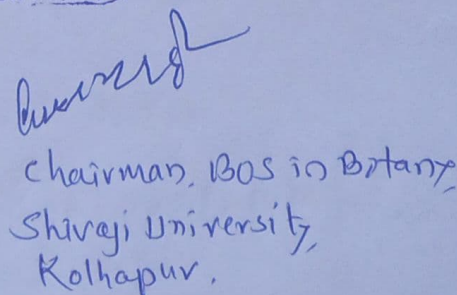 Chairman, BOS in Botany,
Shivaji University,
Kolhapur.